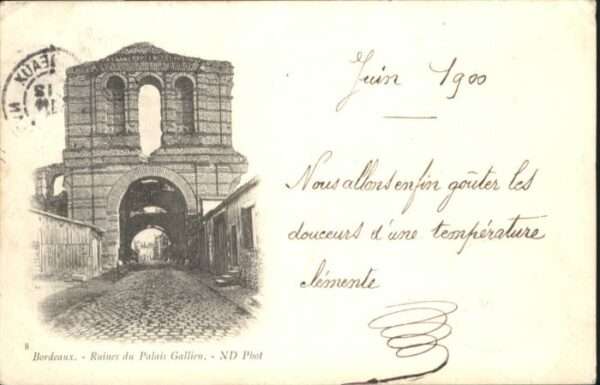 EAUX
13
Juin 1900
Nous allons enfin goûter les
douceurs d'une température
clémente
8
Bordeaux. - Ruines du Palais Gallien. - ND Phot